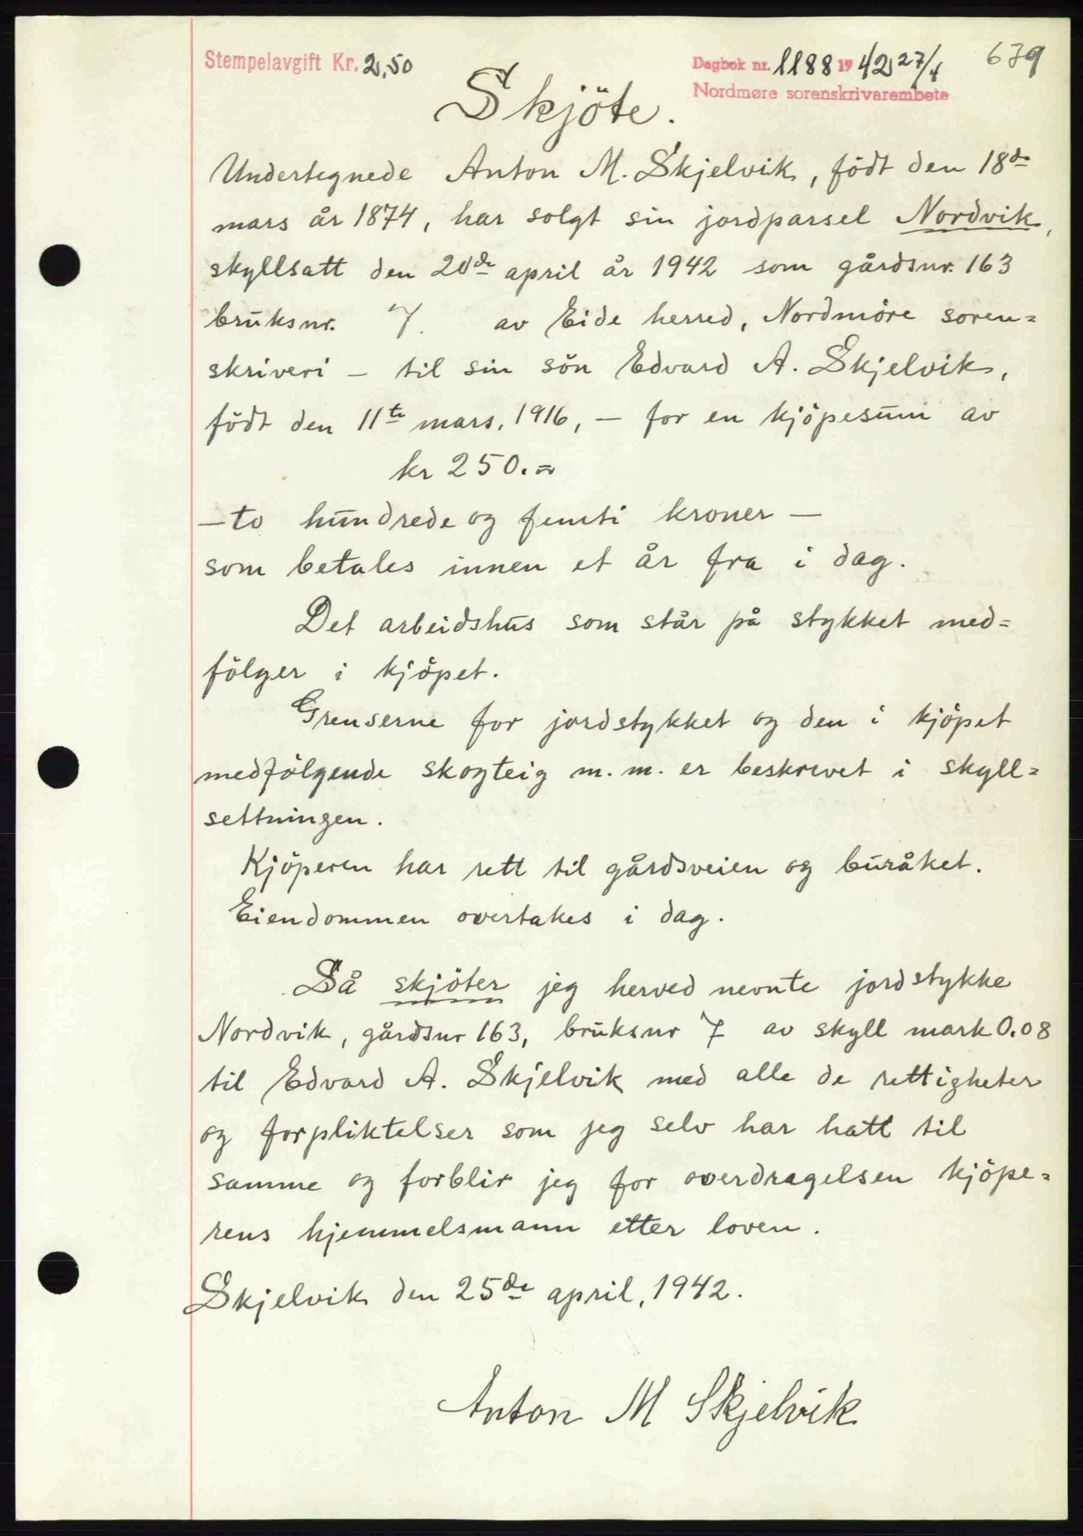 Stempelavgift Kr. 2,50
Dagbok nr. 1188 19 42 27/4
679
Nordmøre sorenskrivarembete
Skjöte.
Undertegnede Anton M. Skjelvik, född den 18de
mars år 1874, har solgt sin jordparsel Nordvik,
skyllsatt den 20de april år 1942 som gårdsnr. 163
bruksnr. 7. av Eide herred, Nordmöre soren=
skriveri – til sin sön Edvard A. Skjelvik,
födt den 11te mars, 1916, – for en kjöpesum av
kr 250.=
– to hundrede og femti kroner –
som betales innen et år fra i dag.
Det arbeidshus som står på stykket med=
fölger i kjöpet.
Grenserne for jordstykket og den i kjöpet
medfölgende skogteig m.m. er beskrevet i skyll=
settningen.
Kjöperen har rett til gårdsveien og buråket.
Eiendommen overtakes i dag.
Så skjöter jeg herved nevnte jordstykke
Nordvik, gårdsnr 163, bruksnr 7 av skyll mark 0.08
til Edvard A. Skjelvik med alle de rettigheter
og forpliktelser som jeg selv har hatt til
samme og forblir jeg for overdragelsen kjöpe=
rens hjemmelsmann etter loven.
Skjelvik den 25de april, 1942.
Anton M Skjelvik